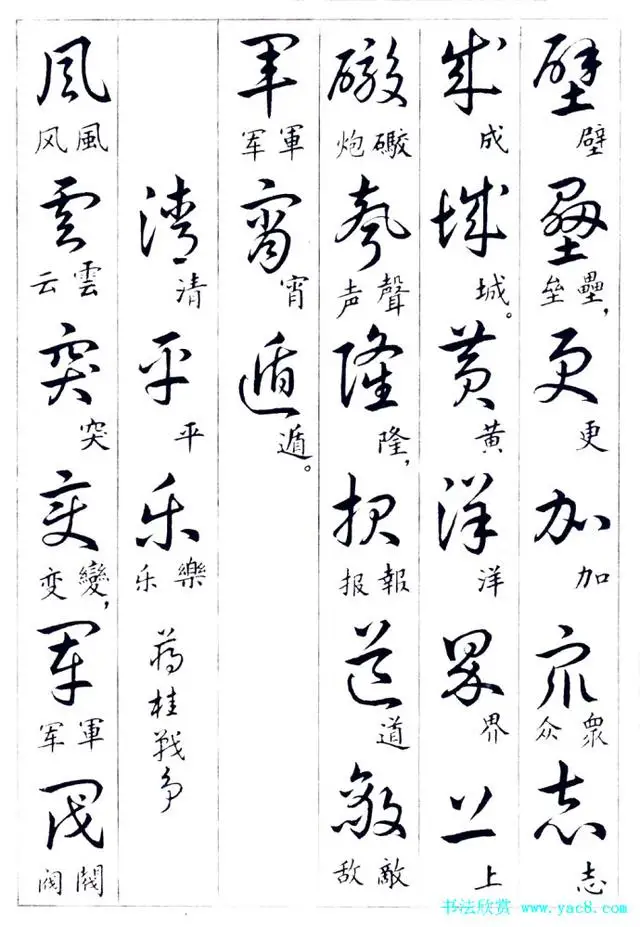 壁壘更加众志
壁 垒壘， 更 加 众衆 志
成城黄洋界上
成 城。 黄 洋 界 上
礮声隆报道敌
炮礮 声聲 隆， 报報 道 敌敵
军宵遁
军軍 宵 遁。
清平乐
清 平 乐樂
蒋桂戰争
风云突变军阀
风風 云雲 突 变變， 军軍 阀閥
书法欣赏 www.yac8.com